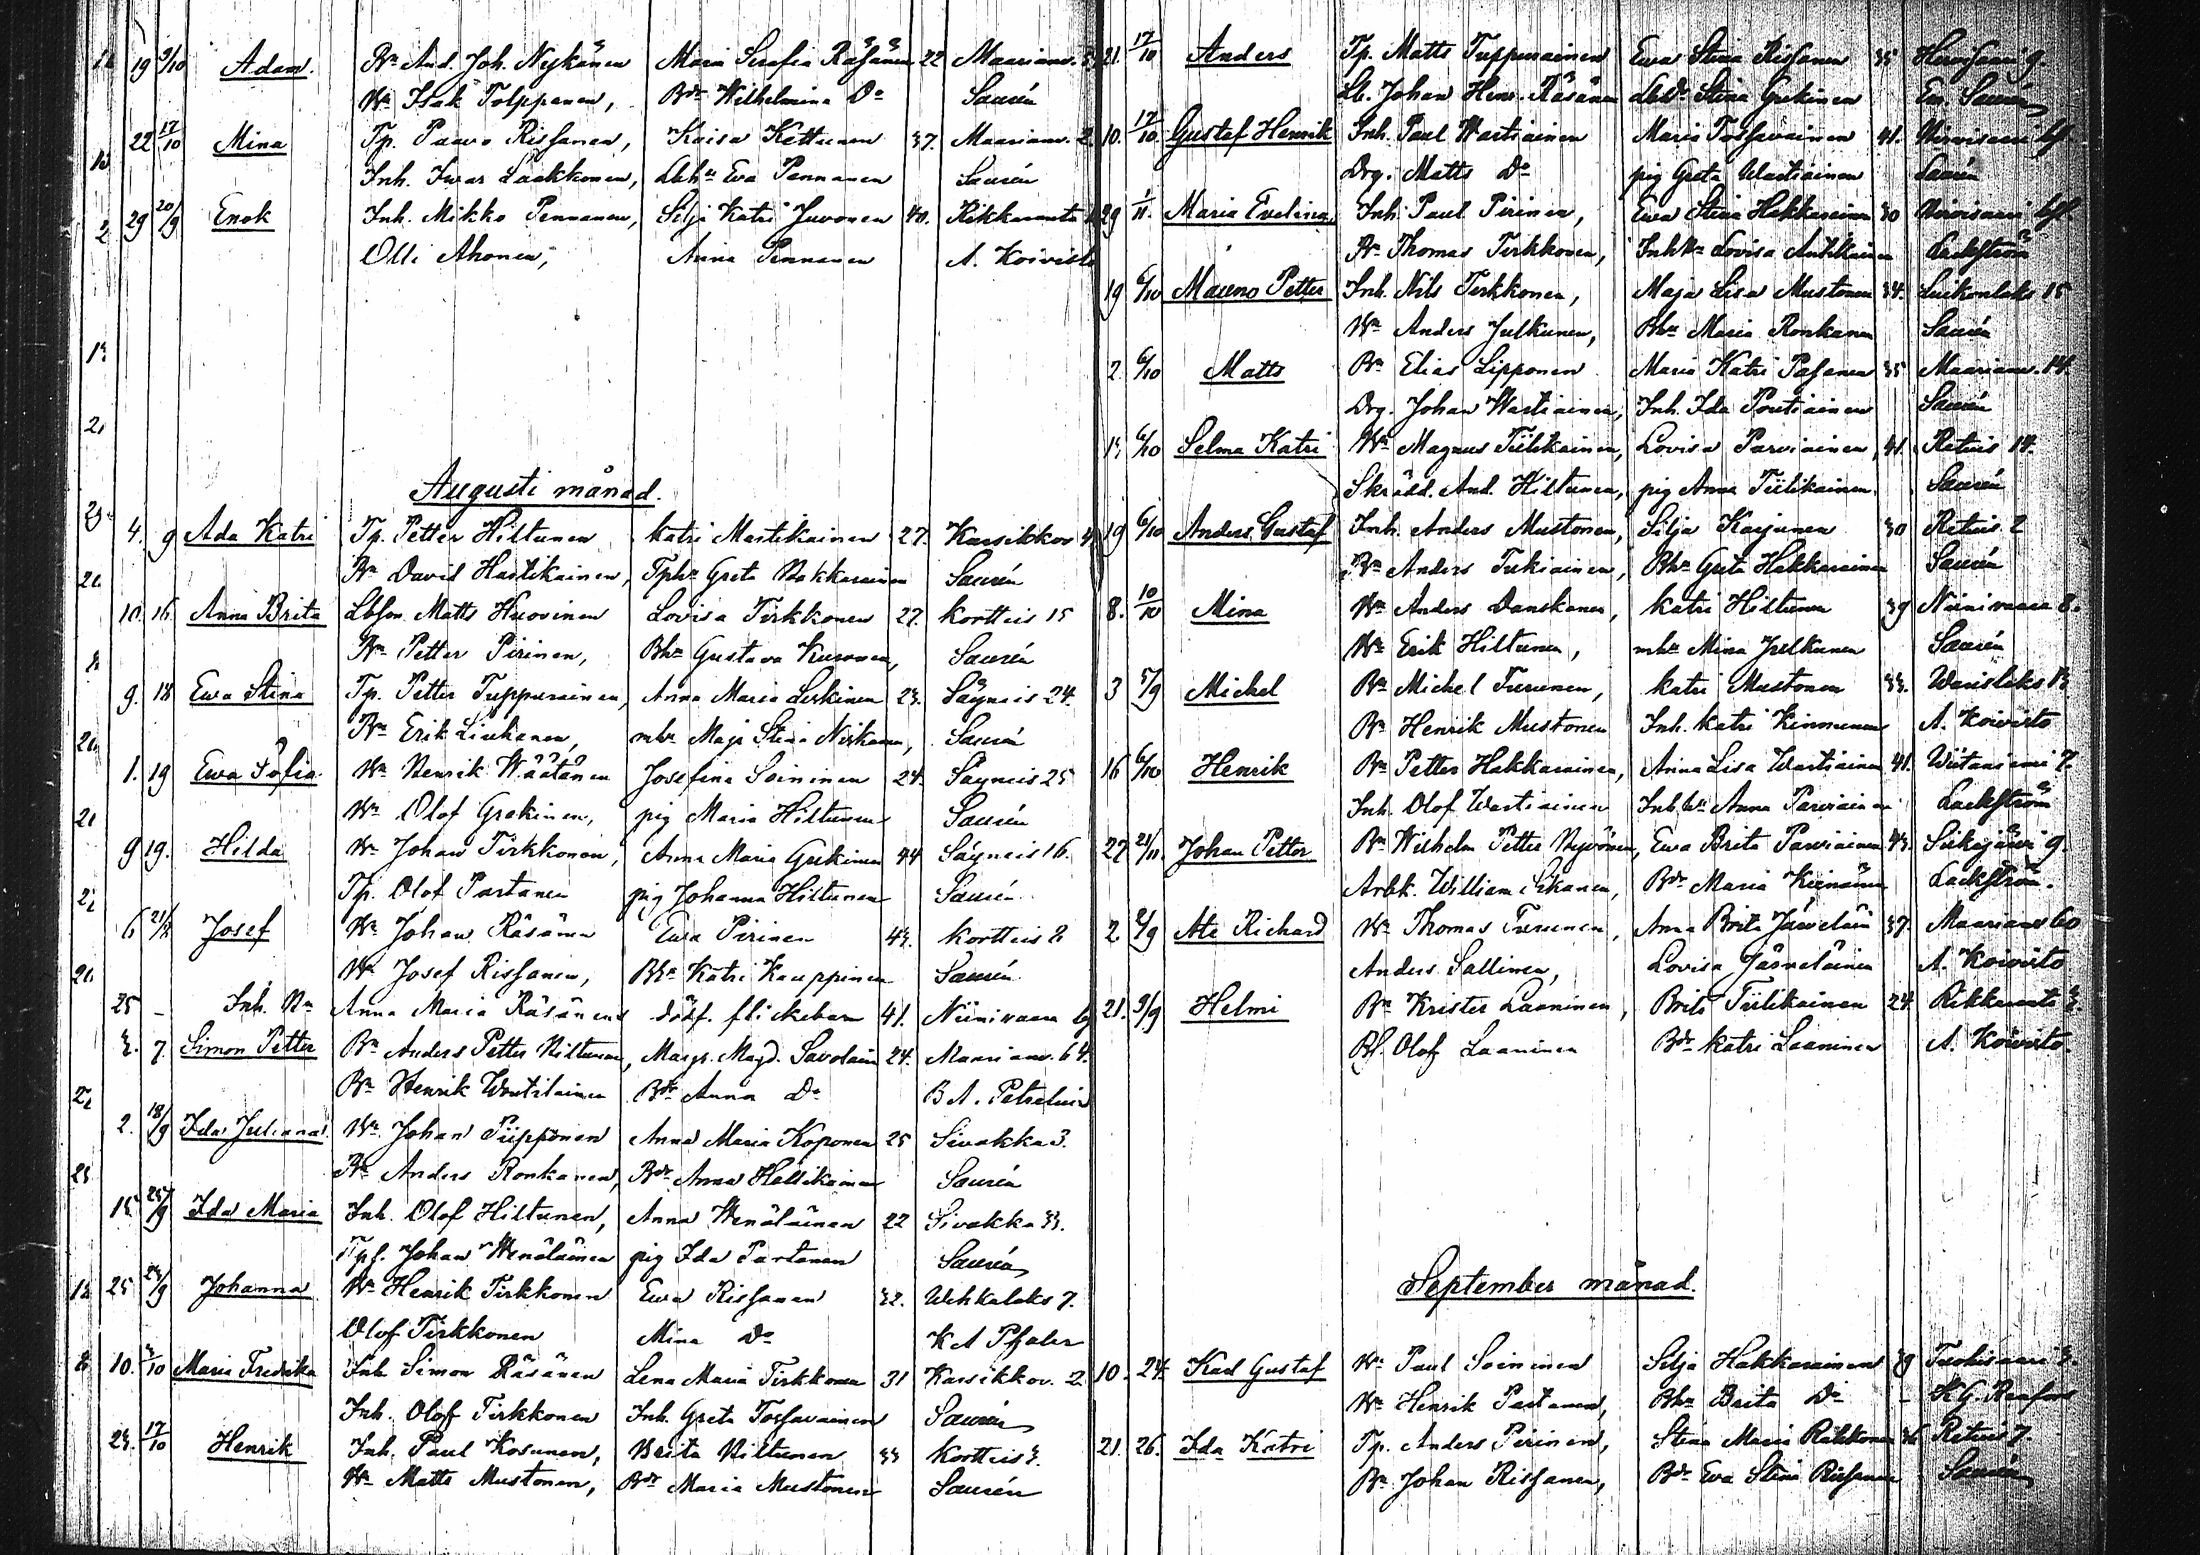 19 9/10 Adam. Bn And. Joh. Nykänen Maria Serafia Räsänen 22 Maarianv.
Wn Isak Tolppanen, Bdr Wilhelmina Do Saurén
22 17/10 Mina Tp. Paavo Rissanen, Kaisa Kettunen 37. Maarianv. 2
Inh. Iwar Laakkonen, Eva Pennanen Saurén
29 20/9 Enok Inh. Mikko Pennanen, Silja Katri Juvonen 40. Rikkaranta
Olli Ahonen, Anna Pennanen A. Koivisto
Augusti månad.
4. 9 Ada Katri Tp. Petter Hiltunen Katri Martikainen 27. Karsikkov
Bn David Hartikainen, Tphu Greta Hakkarainen Saurén
10. 16. Anna Brita Matts Huovinen Lovisa Tirkkonen 27. Kortteis 15
Bn Petter Pirinen, Bhu Gustava Kuronen, Saurén
9. 18 Ewa Stina Tp. Petter Tuppurainen, Anna Maria Leskinen 23. Säyneis 24.
Bn Erik Liukanen, mhu Maja Stina Saurén
1. 19 Ewa Sofia. Wn Henrik Wäätänen Josefina Soininen 24. Säyneis 25
Wn Olof Grekinen, pig Maria Hiltunen Saurén
9 19. Hilda Wn Johan Tirkkonen, Anna Maria Grekinen 44 Säyneis 16.
Tp. Olof Partanen pig Johanna Hiltunen Saurén
6 Josef Wn Johan Räsänen Ewa Pirinen 43. Kortteis 8
Wn Josef Rissanen, Bhu Katri Kauppinen Saurén
25 – Inh. Anna Maria Räsänens dödf. flickebarn 41. Niinivaara
3. 7. Simon Petter Bn Anders Petter Hiltunen, Margr. Magd. Savolain 24. Maarianv. 64.
Bn Henrik Woutilainen Bdr Anna Do B A. Petrelius
2. 18/9 Ida Juliana. Wn Johan Piipponen Anna Maria Koponen 25 Sivakka 3.
Bn Anders Ronkanen, Bdr Anna Saurén
15. 25/9 Ida Maria Inh. Olof Hiltunen, Anna Wenäläinen 22 Sivakka 33.
Tpf. Johan Wenäläinen pig Ida Partanen Saurén
25 29/9 Johanna Wn Henrik Tirkkonen Ewa Rissanen 32. Wehkalaks 7.
Olof Tirkkonen Mina Do K A Pfaler
10. 3/10 Maria Fredrika Inh Simon Räsänen Lena Maria Tirkkonen 31 Karsikkov. 2
Inh. Olof Tirkkonen Inh. Greta Tossavainen Saurén
23. 17/10 Henrik Inh. Paul Kosunen, Brita Hiltunen 33 Kortteis 3.
Wn Matts Mustonen, Bdr Maria Mustonen Saurén
21. 17/10 Anders Tp. Matts Tuppurainen Ewa Stina Rissanen 35 9.
Lb. Johan Henr. Räsänen Stina Grekinen Em. Saurén
10. 17/10. Gustaf Henrik Inh. Paul Wartiainen Maria Tossavainen 41.
Drg. Matts Do pig Greta Wartiainen Saurén
29 1/11. Maria Evelina Inh. Paul Pirinen, Ewa Stina Hakkarainen 30
Bn Thomas Tirkkonen, Lovisa Antikainen Lackström
19 6/10 Mauno Petter Inh. Nils Tirkkonen, Maja Lisa Mustonen 34. Luikonlaks 15
Wn Anders Julkunen, Bhu Maria Ronkanen Saurén
2. 6/10 Matts Bn Elias Lipponen Maria Katri Pasanen 35 Maarianv. 14.
Drg. Johan Wartiainen, Inh. Ida Poutiainen Saurén
15 6/10 Selma Katri Wn Magnus Tiilikainen, Lovisa Parviainen, 41. Retuis 14.
Skrädd. And. Hiltunen, pig Anna Tiilikainen. Saurén
19 6/10 Anders Gustaf Inh. Anders Mustonen, Silja Karjunen 30 Retuis 2
Bn Anders Tukiainen, Bhu Greta Hakkarainen Saurén
8. 10/10 Mina Wn Anders Danskanen, Katri Hiltunen 39 Niinivaara 8.
Wn Erik Hiltunen, mhu Mina Julkunen Saurén
3 Michel Bn Michel Turunen, Katri Mustonen 33.
Bn Henrik Mustonen Inh. Katri Kinnunen A. Koivisto
16 6/10 Henrik Bn Petter Hakkarainen, Anna Lisa Wartiainen 41. Wiitaniemi 7.
Inh. Olof Wartiainen Anna Parviainen Lackström
27 21/11. Johan Petter Bn Wilhelm Petter Hyvönen, Ewa Brita Parviainen 43. Siikajärvi 9.
Arbk. William Bdr Maria Lackström.
2 Ate Richard Wn Thomas Turunen, Anna Brita Järvelain 37. Maarianv 60
Anders Sallinen, Lovisa Järveläinen A. Koivisto
21. 9/9 Helmi Bn Krister Laaninen, Brita Tiilikainen 24. Rikkaranta 3.
Bf. Olof Laaninen Bdr Katri Laaninen A. Koivisto.
September månad.
10 24. Karl Gustaf Wn Paul Soininen Silja Hakkarainen 39
Wn Henrik Partanen, Bhu Brita Do K G.
21. 26. Ida Katri Tp. Anders Pirinen, Stina Maria 36 Retuis 7.
Bn Johan Rissanen, Bdr Eva Stina Rissanen Saurén